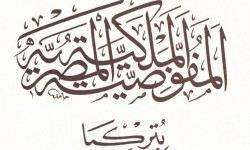 المفوضية الملكية المصرية
بتركيا